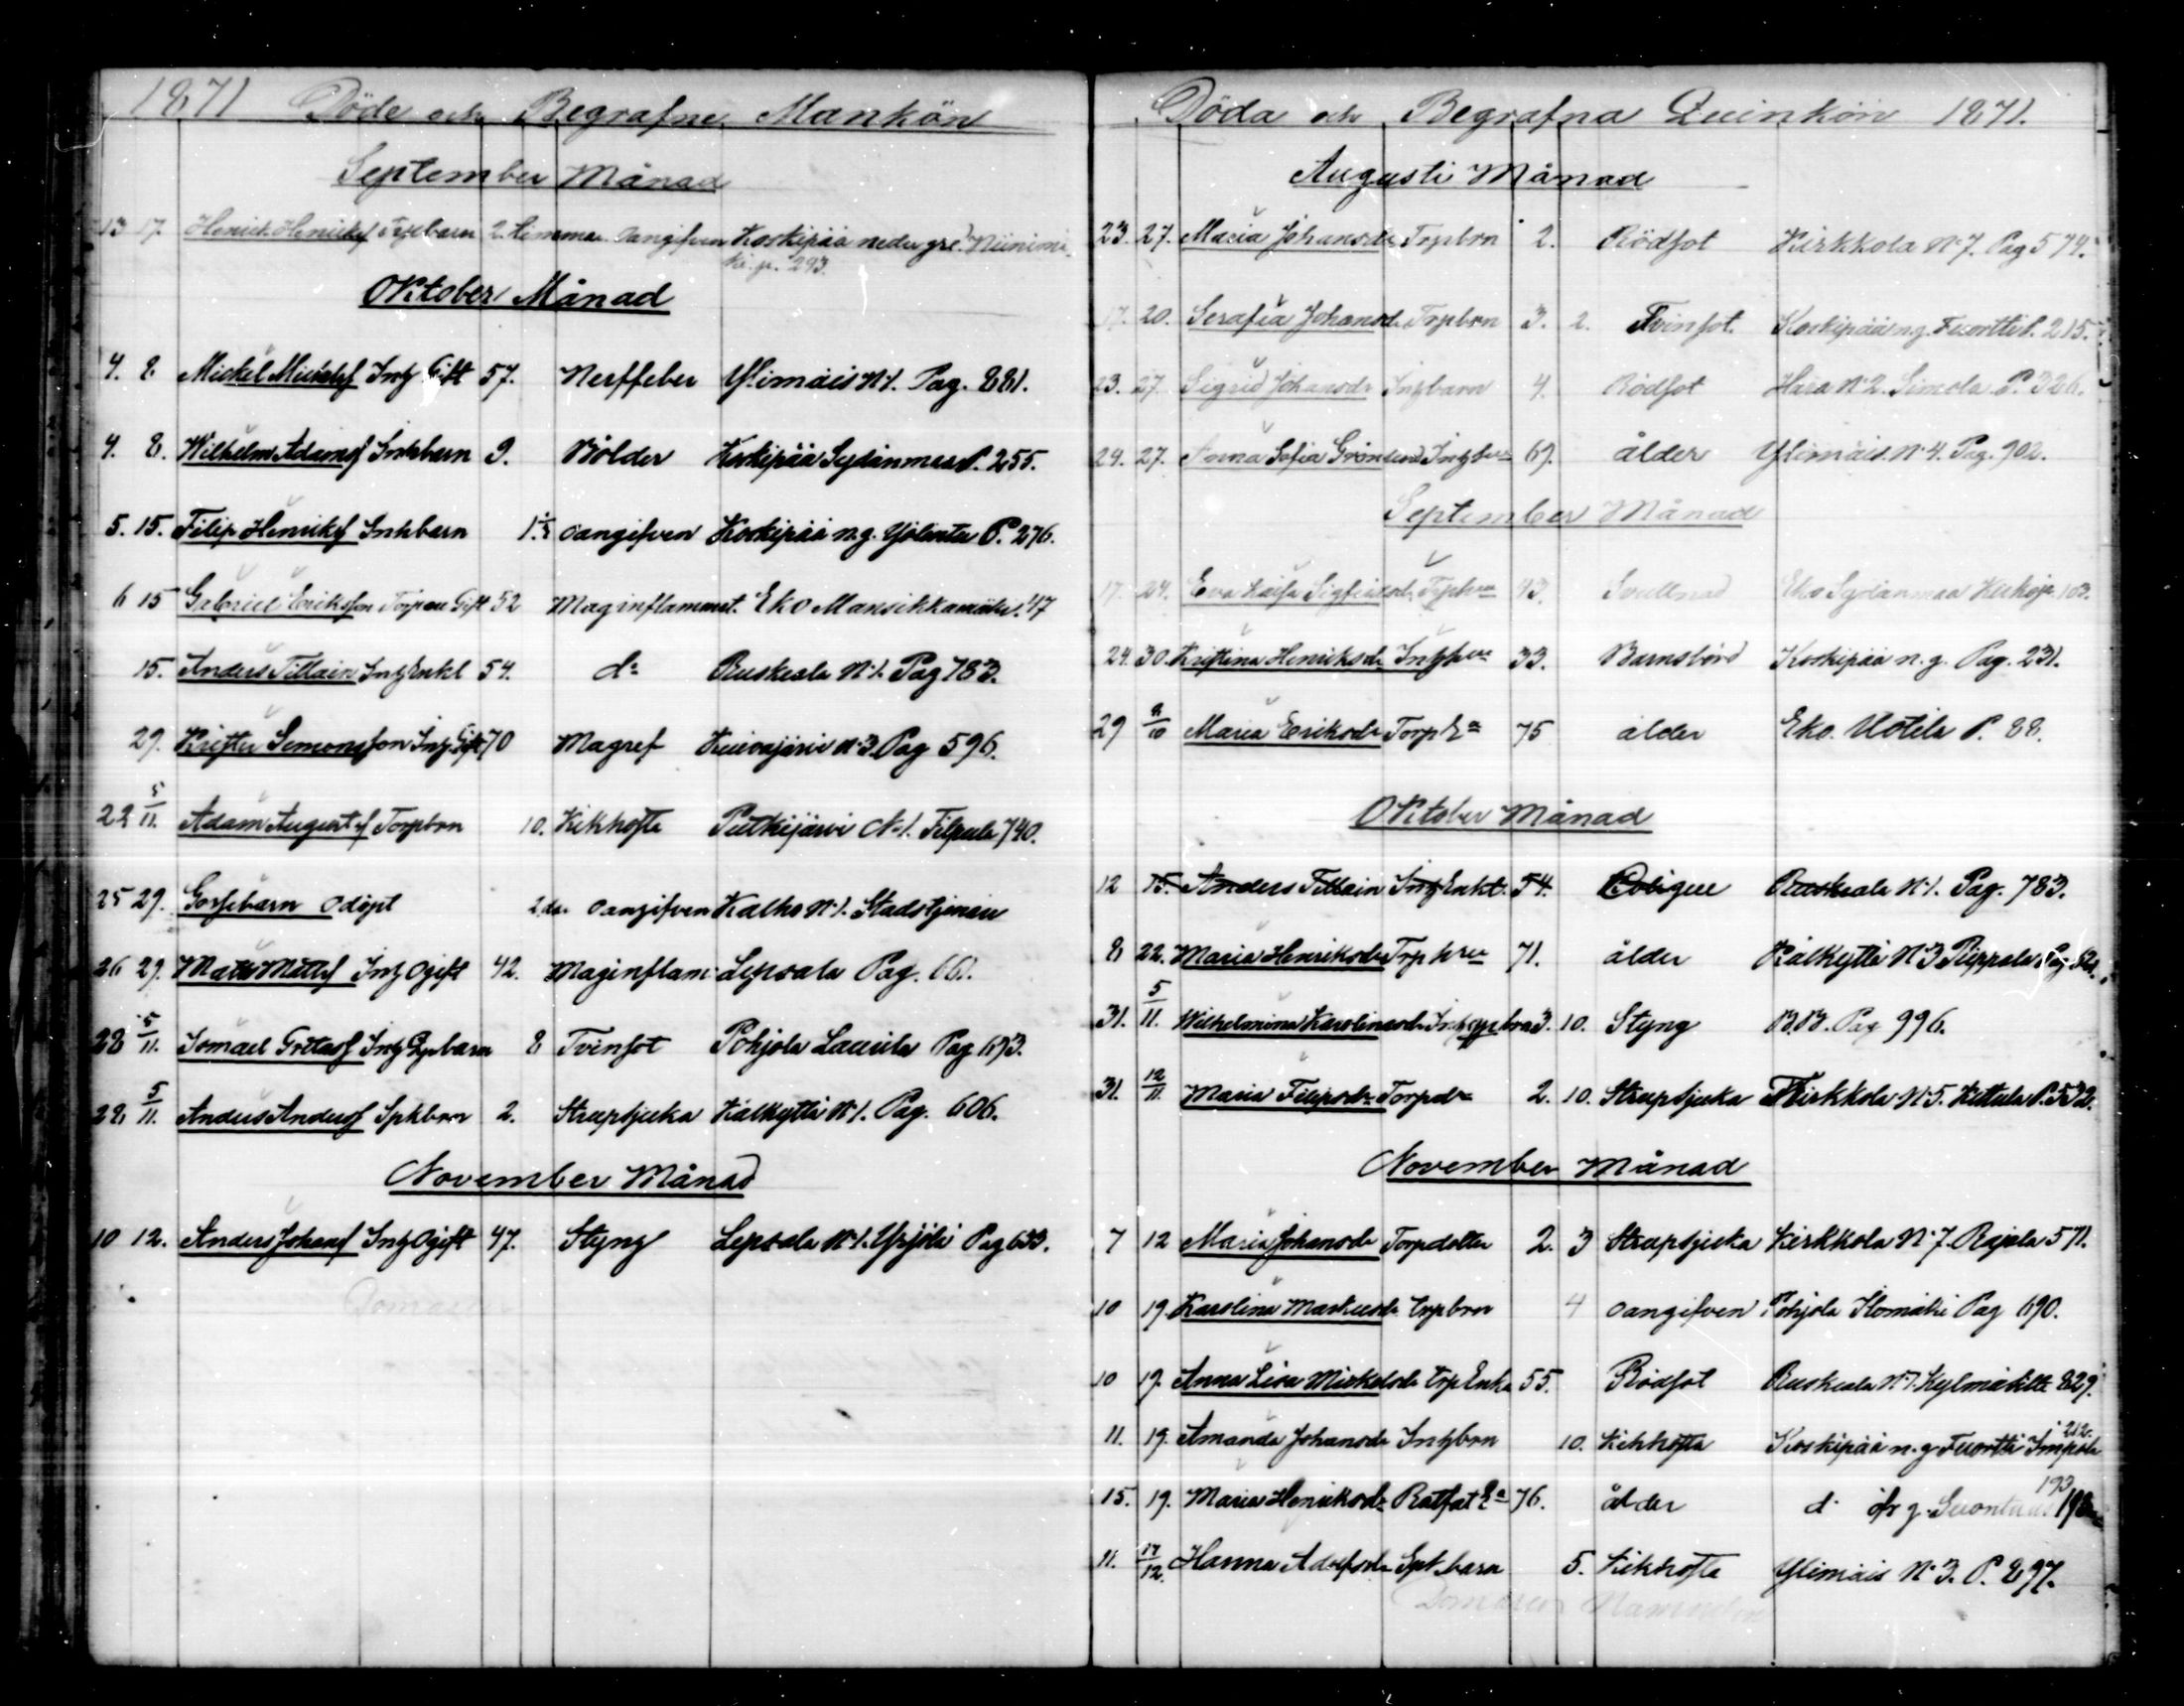 1871 Döde och Begrafne Mankön
September Månad
13 17. Henrik Henriksf 2. Oangifven Koskipää nedre gre. Niinimä
ki. p. 293.
Oktober Månad
4. 8 Mickel Mickelsf Inh Gift 57. Nerffeber Ylimäis N:1. Pag. 881.
4. 8. Wilhelm Adamsf Inhbarn 9. Bölder Koskipää Sydänmaa P. 255.
5. 15. Filip Henriksf Inhbarn 1. oangifven Koskipää n.g. P. 276.
6 15 Gabriel Eriksson Torpare Gift 52 Maginflammat. Eko Mansikkamäki. 47
15. Anders Tillain Inh Enkl 54. do Ruskeala N:1. Pag 783.
29. Krister Simonsson Inh Gift 70 Magref Kuivajärvi N:3. Pag 596.
22 5/11. Adam Augustsf Torpbrn 10. Kikhosta Putkijärvi N:1. Filpula 740.
25 29. Gossebarn odöpt 2 da. oangifven Kalho N:1.
26 29. Matts Mattsf Inh Ogift 42. Maginflam Lepsala Pag. 661.
28 5/11. Ismael Gretasf Inh barn 8 Tvinsot Pohjola Laurila Pag 693.
28 5/11. Anders Andersf Sphbrn 2. Strupsjuka Kälkyttä N:1. Pag. 606.
November Månad
10 12. Anders Johansf Inh Ogift 47. Styng Lepsala N:1. Yrjölä Pag 633.
Döda och Begrafna Quinkön 1871.
Augusti Månad
23. 27. Maria Johansdr Trpbrn 2. Rödsot Kirkkola N:7. Pag 574.
17. 20. Serafia Johansdr Trpbrn 3. 2. Tvinsot. Koskipää n.g. Tuortti P. 215.
23. 27. Sigrid Johansdr Inhbarn 4. Rödsot Hara N:2. Simola. P. 326.
24. 27. Anna Sofia Grönlund 69. ålder Ylimäis. N:4. Pag. 902.
September Månad
17. 24. Eva Kaisa Sigfridsdr Trphu 43. Svullnad Eko Sydänmaa 103.
24. 30. Kristina Henriksdr Inhhu 33. Barnsbörd Koskipää n.g. Pag. 231.
29 8/10 Maria Eriksdr Torp Ea 75 ålder Eko. Uotila P. 88.
Oktober Månad
12 15. Anders Tillain Inh Enkl. 54. Ruskeala N:1. Pag. 783.
8 22. Maria Henriksdr Trp hru 71. ålder Kälkyttä N:3 Piippola Pag
31. 5/11. Wilhelmina Karolinasdr Inh 3. 10. Styng B.B. Pag 996.
31. 12/11. Maria Filipsdr Torpdr 2. 10. Strupsjuka Kirkkola N:5. Kuttula P.
November Månad
7 12 Maria Johansdr Torpdotter 2. 3 Strupsjuka Kirkkola N:7. Rajala 571.
10 19. Karolina Markusdr Trpbrn 4 oangifven Pohjola Ilomäki Pag 690.
10 19. Anna Lisa Mickelsdr Trp Enka 55. Rödsot Ruskeala N:7. 829.
11. 19. Amanda Johansdr Inhbrn 10. Kikhosta Koskipää n.g. Tuortti Impola 212.
15. 19. Maria Henriksdr Ea 76. ålder d: öfr g. 193
11. 17/12. Hanna Adolfsdr Spt. barn 5. Kikhosta Ylimäis N:3. P. 897.